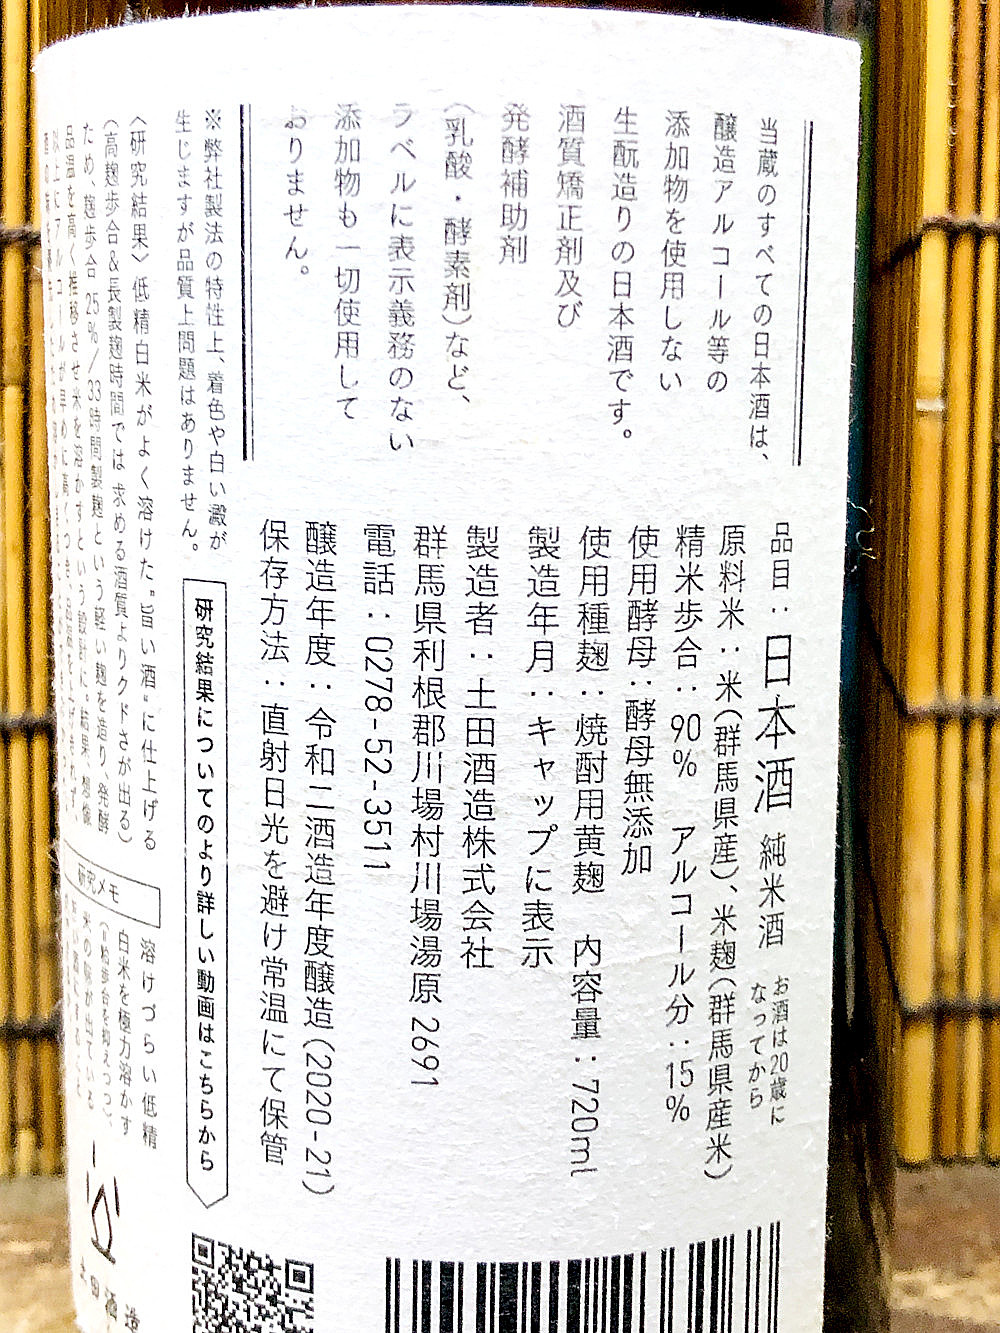 当蔵のすべての日本酒は、
醸造アルコール等の
添加物を使用しない
生酛造りの日本酒です。
酒質矯正剤及び
発酵補助剤
(乳酸・酵素剤)など、
ラベルに表示義務のない
添加物も一切使用して
おりません。
※弊社製法の特性上、着色や白い澱が
生じますが品質上問題はありません。
〈研究結果〉低精白米がよく溶けた“旨い酒”に仕上げる
(高麹歩合&長製麹時間では求める酒質よりクドさが出る)
ため、麹歩合25%/33時間製麹という軽い麹を造り、発酵
品温を高く推移させ米を溶かすという設計に。結果、想像
以上にアルコールが早めに高くつき、品温を上げきれず、
品目:日本酒 純米酒 お酒は20歳に
なってから
原料米:米(群馬県産)、米麹(群馬県産米)
精米歩合:90% アルコール分:15%
使用酵母:酵母無添加
使用種麹:焼酎用黄麹 内容量:720ml
製造年月:キャップに表示
製造者:土田酒造株式会社
群馬県利根郡川場村川場湯原2691
電話:0278-52-3511
醸造年度:令和二酒造年度醸造(2020-21)
保存方法:直射日光を避け常温にて保管
研究結果についてのより詳しい動画はこちらから
研究メモ
溶けづらい低精
白米を極力溶かす
(=粕歩合を抑えつつ)、
米の味が出ている
土田酒造